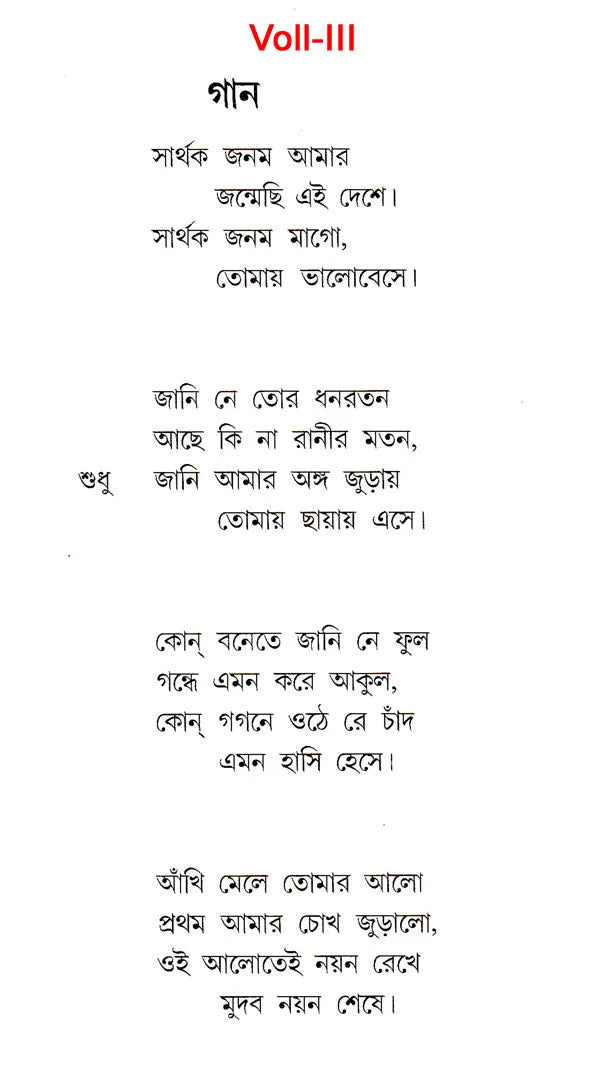 Voll-III
গান
সার্থক জনম আমার
জন্মেছি এই দেশে।
সার্থক জনম মাগো,
তোমায় ভালোবেসে।
জানি নে তোর ধনরতন
আছে কি না রানীর মতন,
শুধু জানি আমার অঙ্গ জুড়ায়
তোমায় ছায়ায় এসে।
কোন্ বনেতে জানি নে ফুল
গন্ধে এমন করে আকুল,
কোন্ গগনে ওঠে রে চাঁদ
এমন হাসি হেসে।
আঁখি মেলে তোমার আলো
প্রথম আমার চোখ জুড়ালো,
ওই আলোতেই নয়ন রেখে
মুদব নয়ন শেষে।